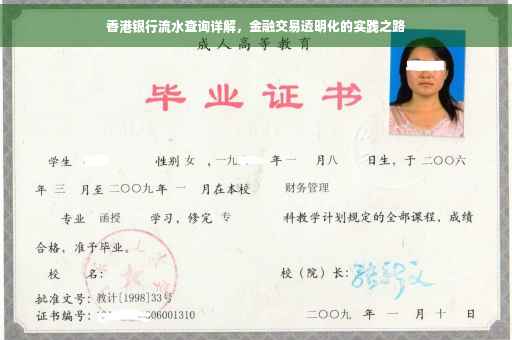 香港银行流水查询详解，金融交易透明化的实践之路
成人高等教育
毕业证书
学生 性别 女 ，一九 年 一 月 八 日生，于 二〇〇六
年 三 月至 二〇〇九 年 一 月在本校 财务管理
专业 函授 学习，修完 专 科教学计划规定的全部课程，成绩
合格，准予毕业。
校 名： 校（院）长：
批准文号：教计[1998]33号
证书编号： 06001310 二〇〇九 年 一 月 十 日